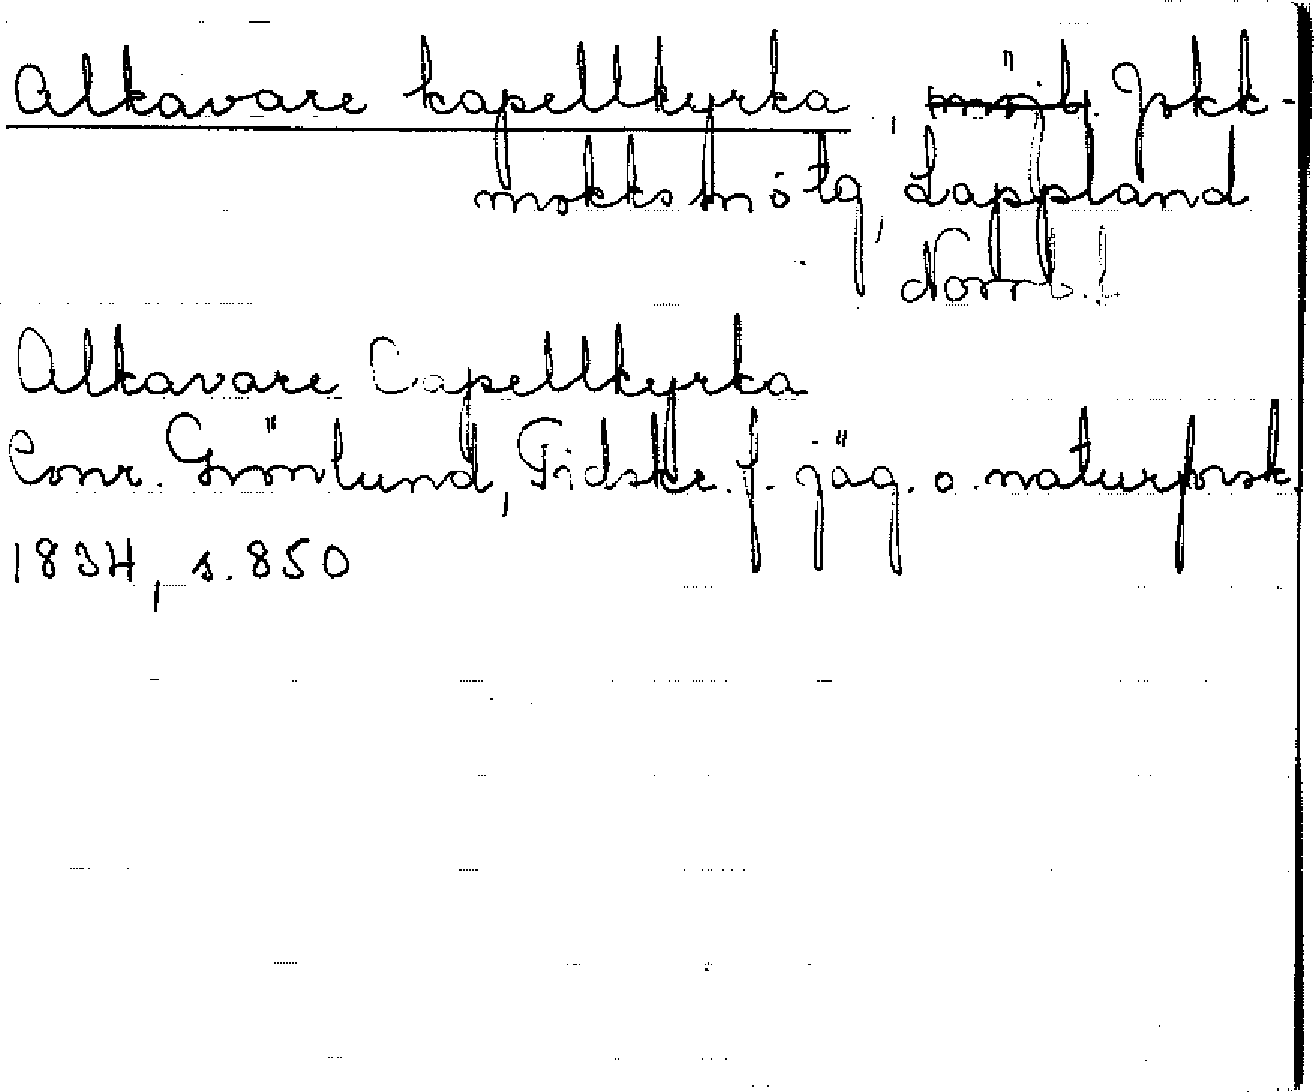 Alkavare kapellkyrka, Jokk-
mokks snötg, Lappland
Norrb. l
Alkavare Capellkyrka
Conr. Grönlund, Tidskr. f. jäg. o. naturforsk.
1834, s. 850